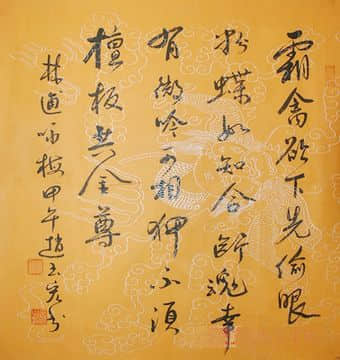 霜禽欲下先偷眼
粉蝶如知合断魂幸
有微吟可相狎不须
檀板共金尊
林逋咏梅甲午赵